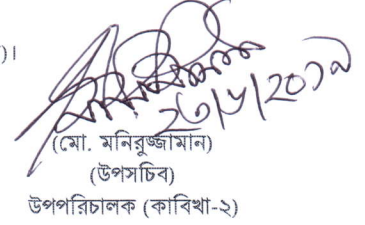 )।
২৩/৮/২০১৯
(মো. মনিরুজ্জামান)
(উপসচিব)
উপপরিচালক (কাবিখা-২)